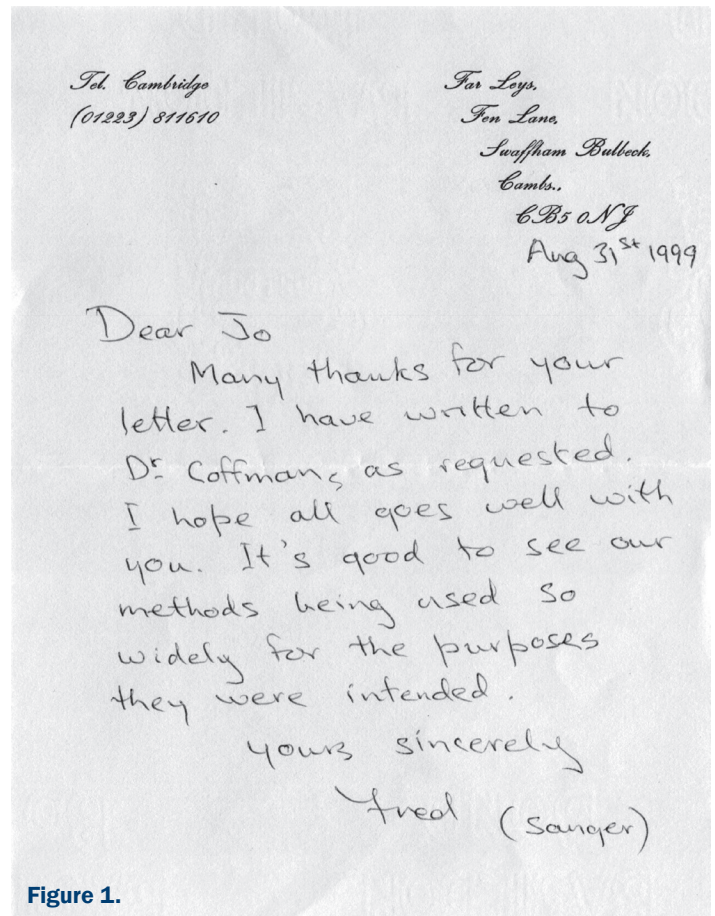 Tel. Cambridge
(01223) 811610
Far Leys,
Fen Lane,
Swaffham Bulbeck,
Cambs.,
CB5 0NJ
Aug 31st 1999
Dear Jo
Many thanks for your
letter. I have written to
Dr. Coffman, as requested.
I hope all goes well with
you. It's good to see our
methods being used so
widely for the purposes
they were intended.
yours sincerely
Fred (Sanger)
Figure 1.